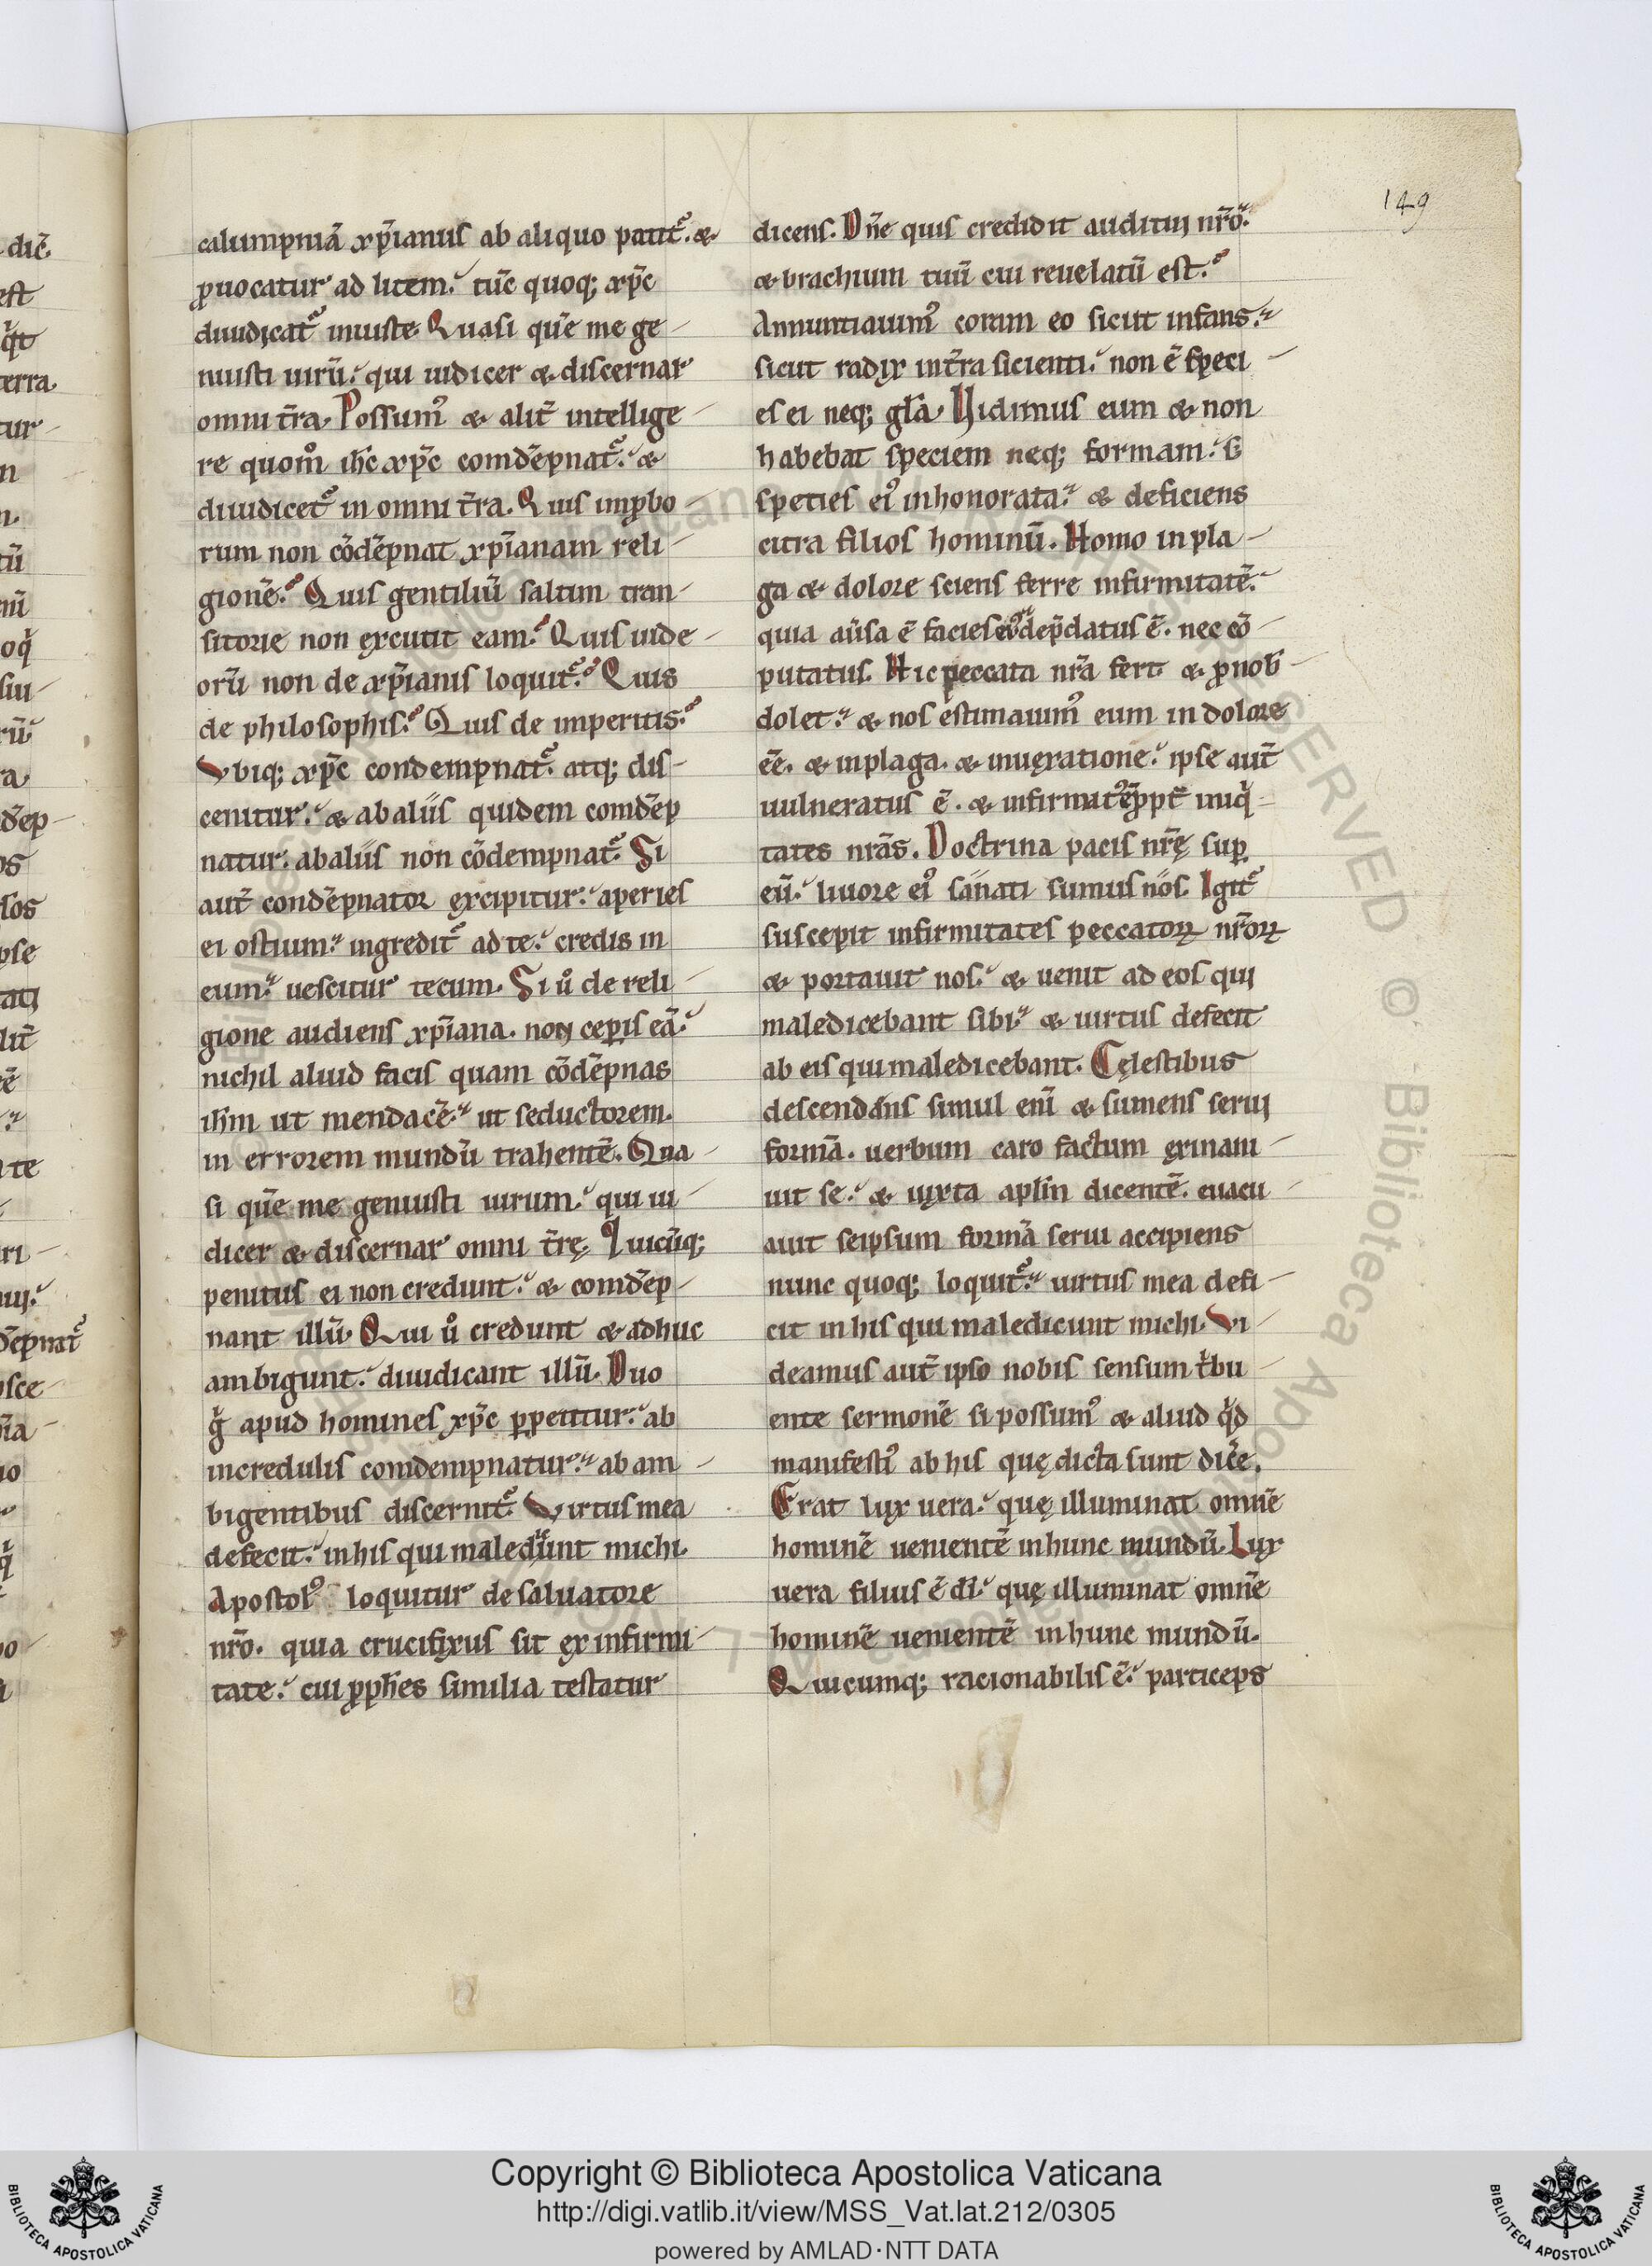 149
calumpniã xp̃ianus ab aliquo patit᷑. &
ꝓuocatur ad litem. tũc quoq; xp̃c
diiudicat᷑ iniuste Quasi quẽ me ge-
nuisti uirũ. qui iudicer & discernar
omni t̃ra. Possum᷒ & alit̃ intellige-
re quom̊ ih̃c xp̃c comdẽpnat᷑. &
diiudicet᷑ in omni t̃ra. Quis imp̱bo-
rum non cõdẽpnat xp̃ianam reli-
gionẽ. Quis gentiliũ saltim tran-
sitorie non excutit eam. Quis iude-
orũ non de xp̃ianis loquit᷑. Quis
de philosophis. Quis de imperitis.
Vbiq; xp̃c condempnat᷑. atq; dis-
cenitur. & ab aliis quidem comdẽp
natur. ab aliis non cõdempnat᷑. Si
aut̃ condẽpnator excipitur. aperies
ei ostium. ingredit᷑ ad te. credis in
eum. uescitur tecum. Si ů de reli-
gione audiens xp̃iana. non cepis eã.
nichil aliud facis quam cõdẽpnas
ih̃m ut mendacẽ. ut seductorem.
in errorem mundũ trahentẽ. Qua-
si quẽ me genuisti uirum. qui iu-
dicer & discernar omni t̃rę. Quicũq;
penitus ei non credunt. & comdẽp-
nant illũ. Qui ů credunt & adhuc
ambigunt. diiudicant illũ. Duo
gͥ apud homines xp̃c p̱petitur. ab
incredulis comdempnatur. ab am-
bigentibus discernit᷑. Virtus mea
defecit. in his qui maledicunt michi.
Apostol᷒ loquitur de saluatore
nr̃o. quia crucifixus sit ex infirmi-
tate. cui ꝓph̃es similia testatur
dicens. Dñe quis credidit auditui nr̃o.
& brachium tuũ cui reuelatũ est.
Annuntiauim᷒ coram eo sicut infans.
sicut radix in t̃ra sicienti. non ẽ speci-
es ei neq; gl̃a. Uidimus eum & non
habebat speciem neq; formam. s̃
species ei᷒ inhonorata. & deficiens
citra filios hominũ. Homo in pla-
ga & dolore sciens ferre infirmitatẽ.
quia aũsa ẽ facies ei᷒ dep̃datus ẽ. nec cõ-
putatus. Hic peccata nr̃a fert & ꝓ nob̃
dolet. & nos estimauim᷒ eum in dolore
eẽ. & in plaga. & in uexatione. ipse aut̃
uulneratus ẽ. & infirmat᷒ ẽ ꝓpt̃ iniqͥ-
tates nr̃as. Doctrina pacis nr̃ę sup̱
eũ. liuore ei᷒ sanati sumus nos. Igit᷑
suscepit infirmitates peccatoꝝ nr̃oꝝ
& portauit nos. & uenit ad eos qui
maledicebant sibi. & uirtus defecit
ab eis qui maledicebant. Cęlestibus
descendens simul enĩ & sumens serui
formã. uerbum caro factum exinani-
uit se. & iuxta apl̃m dicentẽ. euacu-
auit seipsum formã serui accipiens
nunc quoq; loquit᷑. uirtus mea defi-
cit in his qui maledicunt michi. Vi-
deamus aut̃ ipso nobis sensum tͥbu-
ente sermonẽ si possum᷒ & aliud qͥd
manifesti᷒ ab his quę dicta sunt dic̃e.
Erat lux uera. quę illuminat omnẽ
hominẽ uenientẽ in hunc mundũ. Lux
uera filius ẽ dĩ. quę illuminat omnẽ
hominẽ uenientẽ in hunc mundũ.
Quicumq; racionabilis ẽ. particeps
Copyright © Biblioteca Apostolica Vaticana
http://digi.vatlib.it/view/MSS_Vat.lat.212/0305
powered by AMLAD·NTT DATA
BIBLIOTECA APOSTOLICA VATICANA
BIBLIOTECA APOSTOLICA VATICANA